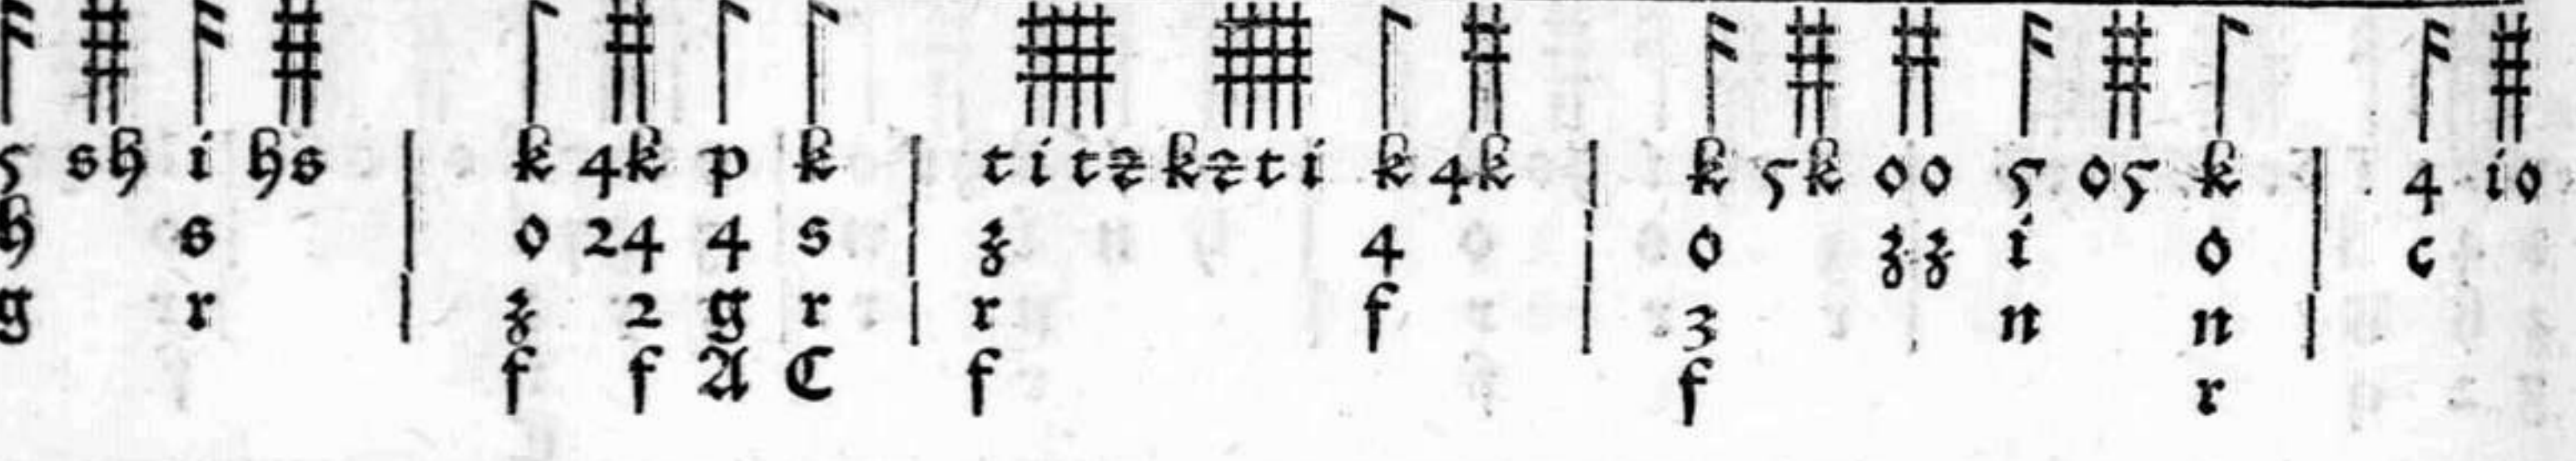 5 sh i hs | k 4k p k | t i t ꝛ k ꝛ t i k 4k | k 5k o o 5 o5 k | 4 i o
h s o 24 4 s ʒ 4 o ʒ ʒ i o c
g r ʒ 2 g r r f 3 n n
f f A C f f r